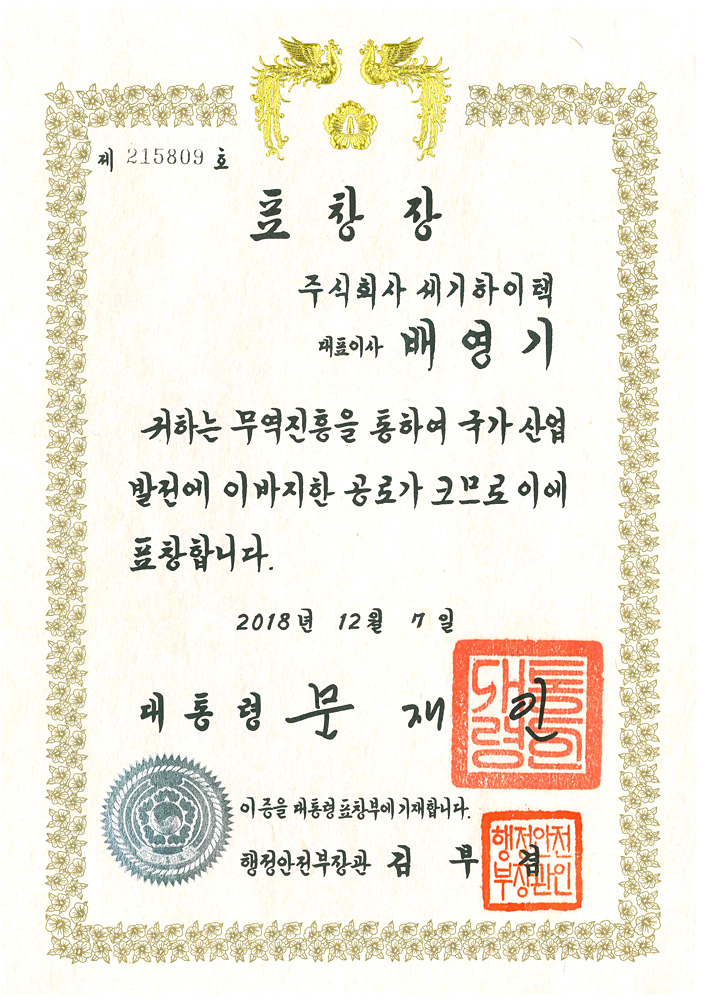 제 215809 호
표 창 장
주식회사 세기하이텍
대표이사 배 영 기
귀하는 무역진흥을 통하여 국가 산업
발전에 이바지한 공로가 크므로 이에
표창합니다.
2018년 12월 7일
대통령 문 재 인
대통령의인
이 증을 대통령표창부에 기재합니다.
행정안전부장관 김 부 겸
행정안전
부장관인